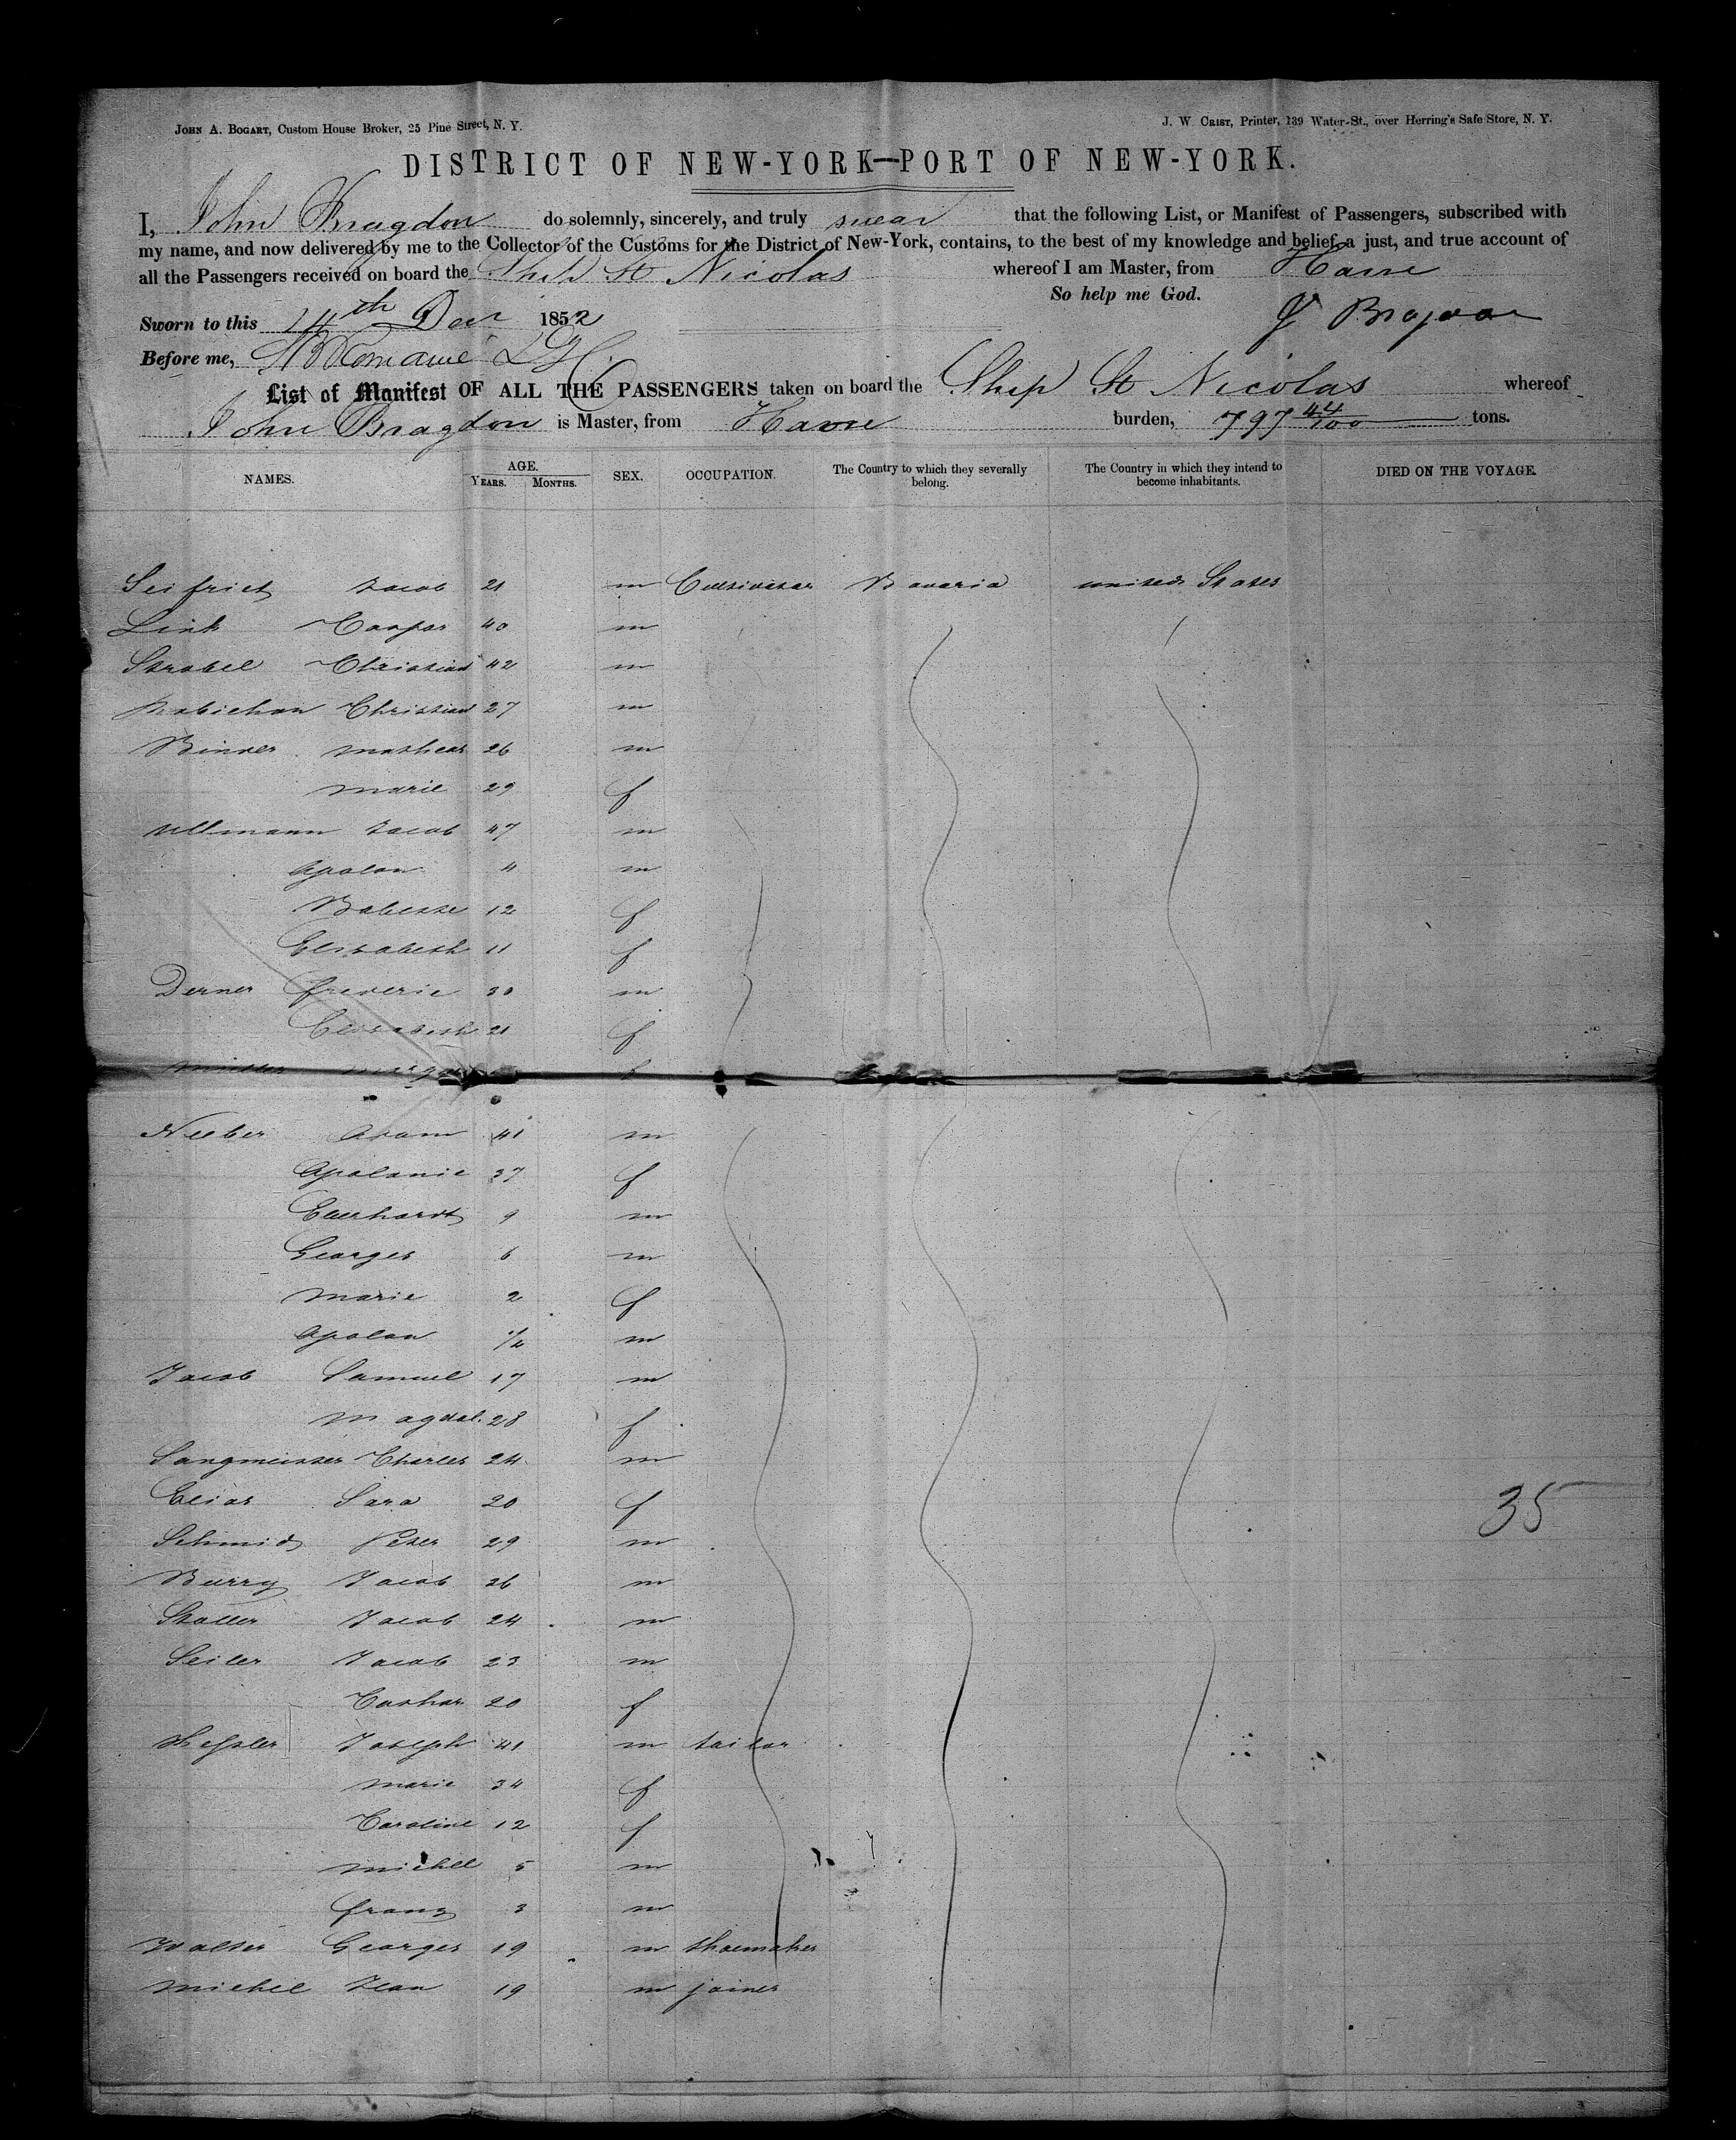 JOHN A. BOGART, Custom House Broker, 25 Pine Street, N. Y.
J. W. CRIST, Printer, 139 Water-St., over Herring's Safe Store, N. Y.
DISTRICT OF NEW-YORK—PORT OF NEW-YORK.
I, John Bragdon do solemnly, sincerely, and truly swear that the following List, or Manifest of Passengers, subscribed with
my name, and now delivered by me to the Collector of the Customs for the District of New-York, contains, to the best of my knowledge and belief, a just, and true account of
all the Passengers received on board the Ship St Nicolas whereof I am Master, from Havre
So help me God.
Sworn to this 14th Decr 1852
J Bragdon
Before me,
List of Manifest OF ALL THE PASSENGERS taken on board the Ship St Nicolas whereof
John Bragdon is Master, from Havre burden, 797 44/100 tons.
NAMES. AGE. YEARS. MONTHS. SEX. OCCUPATION. The Country to which they severally belong. The Country in which they intend to become inhabitants. DIED ON THE VOYAGE.
Seifriet Jacob 21 m Cultivator Bavaria united States
Link Casper 40 m
Strobel Christian 42 m
Christian 27 m
Binder mathear 26 m
marie 29 f
Ullmann Jacob 47 m
Apolon 4 m
Babette 12 f
Elisabeth 11 f
Derner frederic 30 m
Elisabeth 21 f
f
Neeber Adam 41 m
Apolonie 37 f
Eberhardt 9 m
Georges 6 m
Marie 2 f
Apolon m
Jacob Samuel 17 m
Magdal. 28 f
Sangmeister Charles 24 m
Elias Sara 20 f
35
Schmid Peter 29 m
Burry Jacob 26 m
Staller Jacob 24 m
Seiler Jacob 23 m
Cathar 20 f
Joseph 41 m tailor
marie 34 f
Caroline 12 f
michel 5 m
franz 3 m
Walter Georges 19 m shoemaker
Michel Jean 19 m joiner